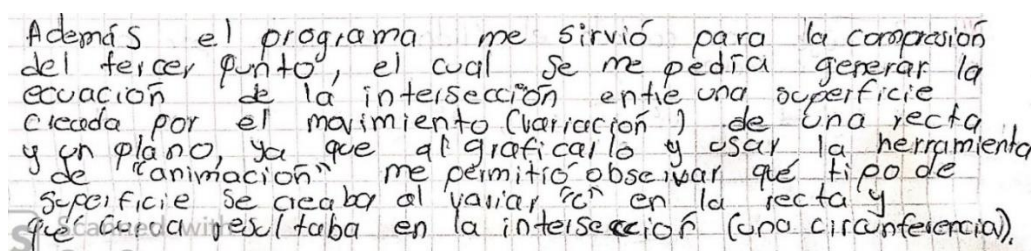 Además el programa me sirvió para la compresión
del tercer punto, el cual se me pedía generar la
ecuación de la intersección entre una superficie
creada por el movimiento (variación) de una recta
y un plano, ya que al graficarlo y usar la herramienta
de "animación" me permitió observar qué tipo de
superficie se creaba al variar "c" en la recta y
qué curva resultaba en la intersección (una circunferencia).